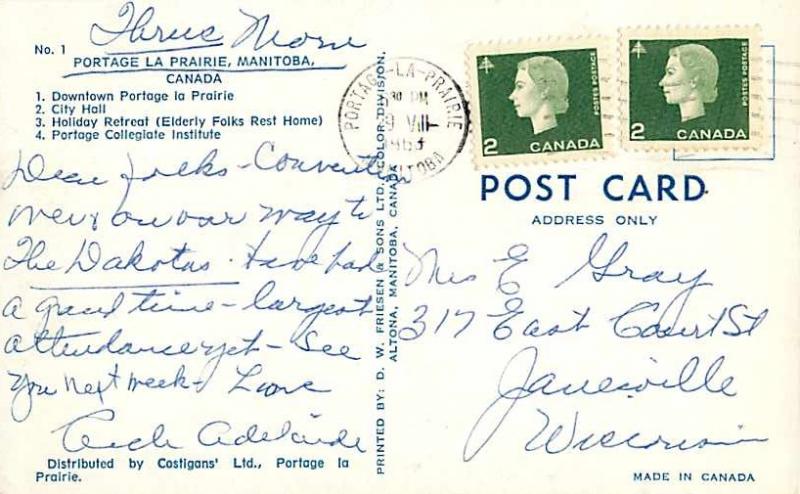 Thurs Morn
No. 1
PORTAGE LA PRAIRIE, MANITOBA,
CANADA
1. Downtown Portage la Prairie
2. City Hall
3. Holiday Retreat (Elderly Folks Rest Home)
4. Portage Collegiate Institute
Dear folks - Convention
over & on our way to
The Dakotas. Have had
a grand time - largest
attendance yet - See
you next week - Love
Adelaide
Distributed by Costigans' Ltd., Portage la
Prairie.
PRINTED BY: D. W. FRIESEN & SONS LTD. COLOR DIVISION.
ALTONA, MANITOBA, CANADA
PORTAGE-LA-PRAIRIE
30 PM
29 VIII
MANITOBA
2 CANADA
POSTES POSTAGE
2 CANADA
POSTES POSTAGE
POST CARD
ADDRESS ONLY
Mrs E Gray
317 East Court St
Janesville
Wisconsin
MADE IN CANADA